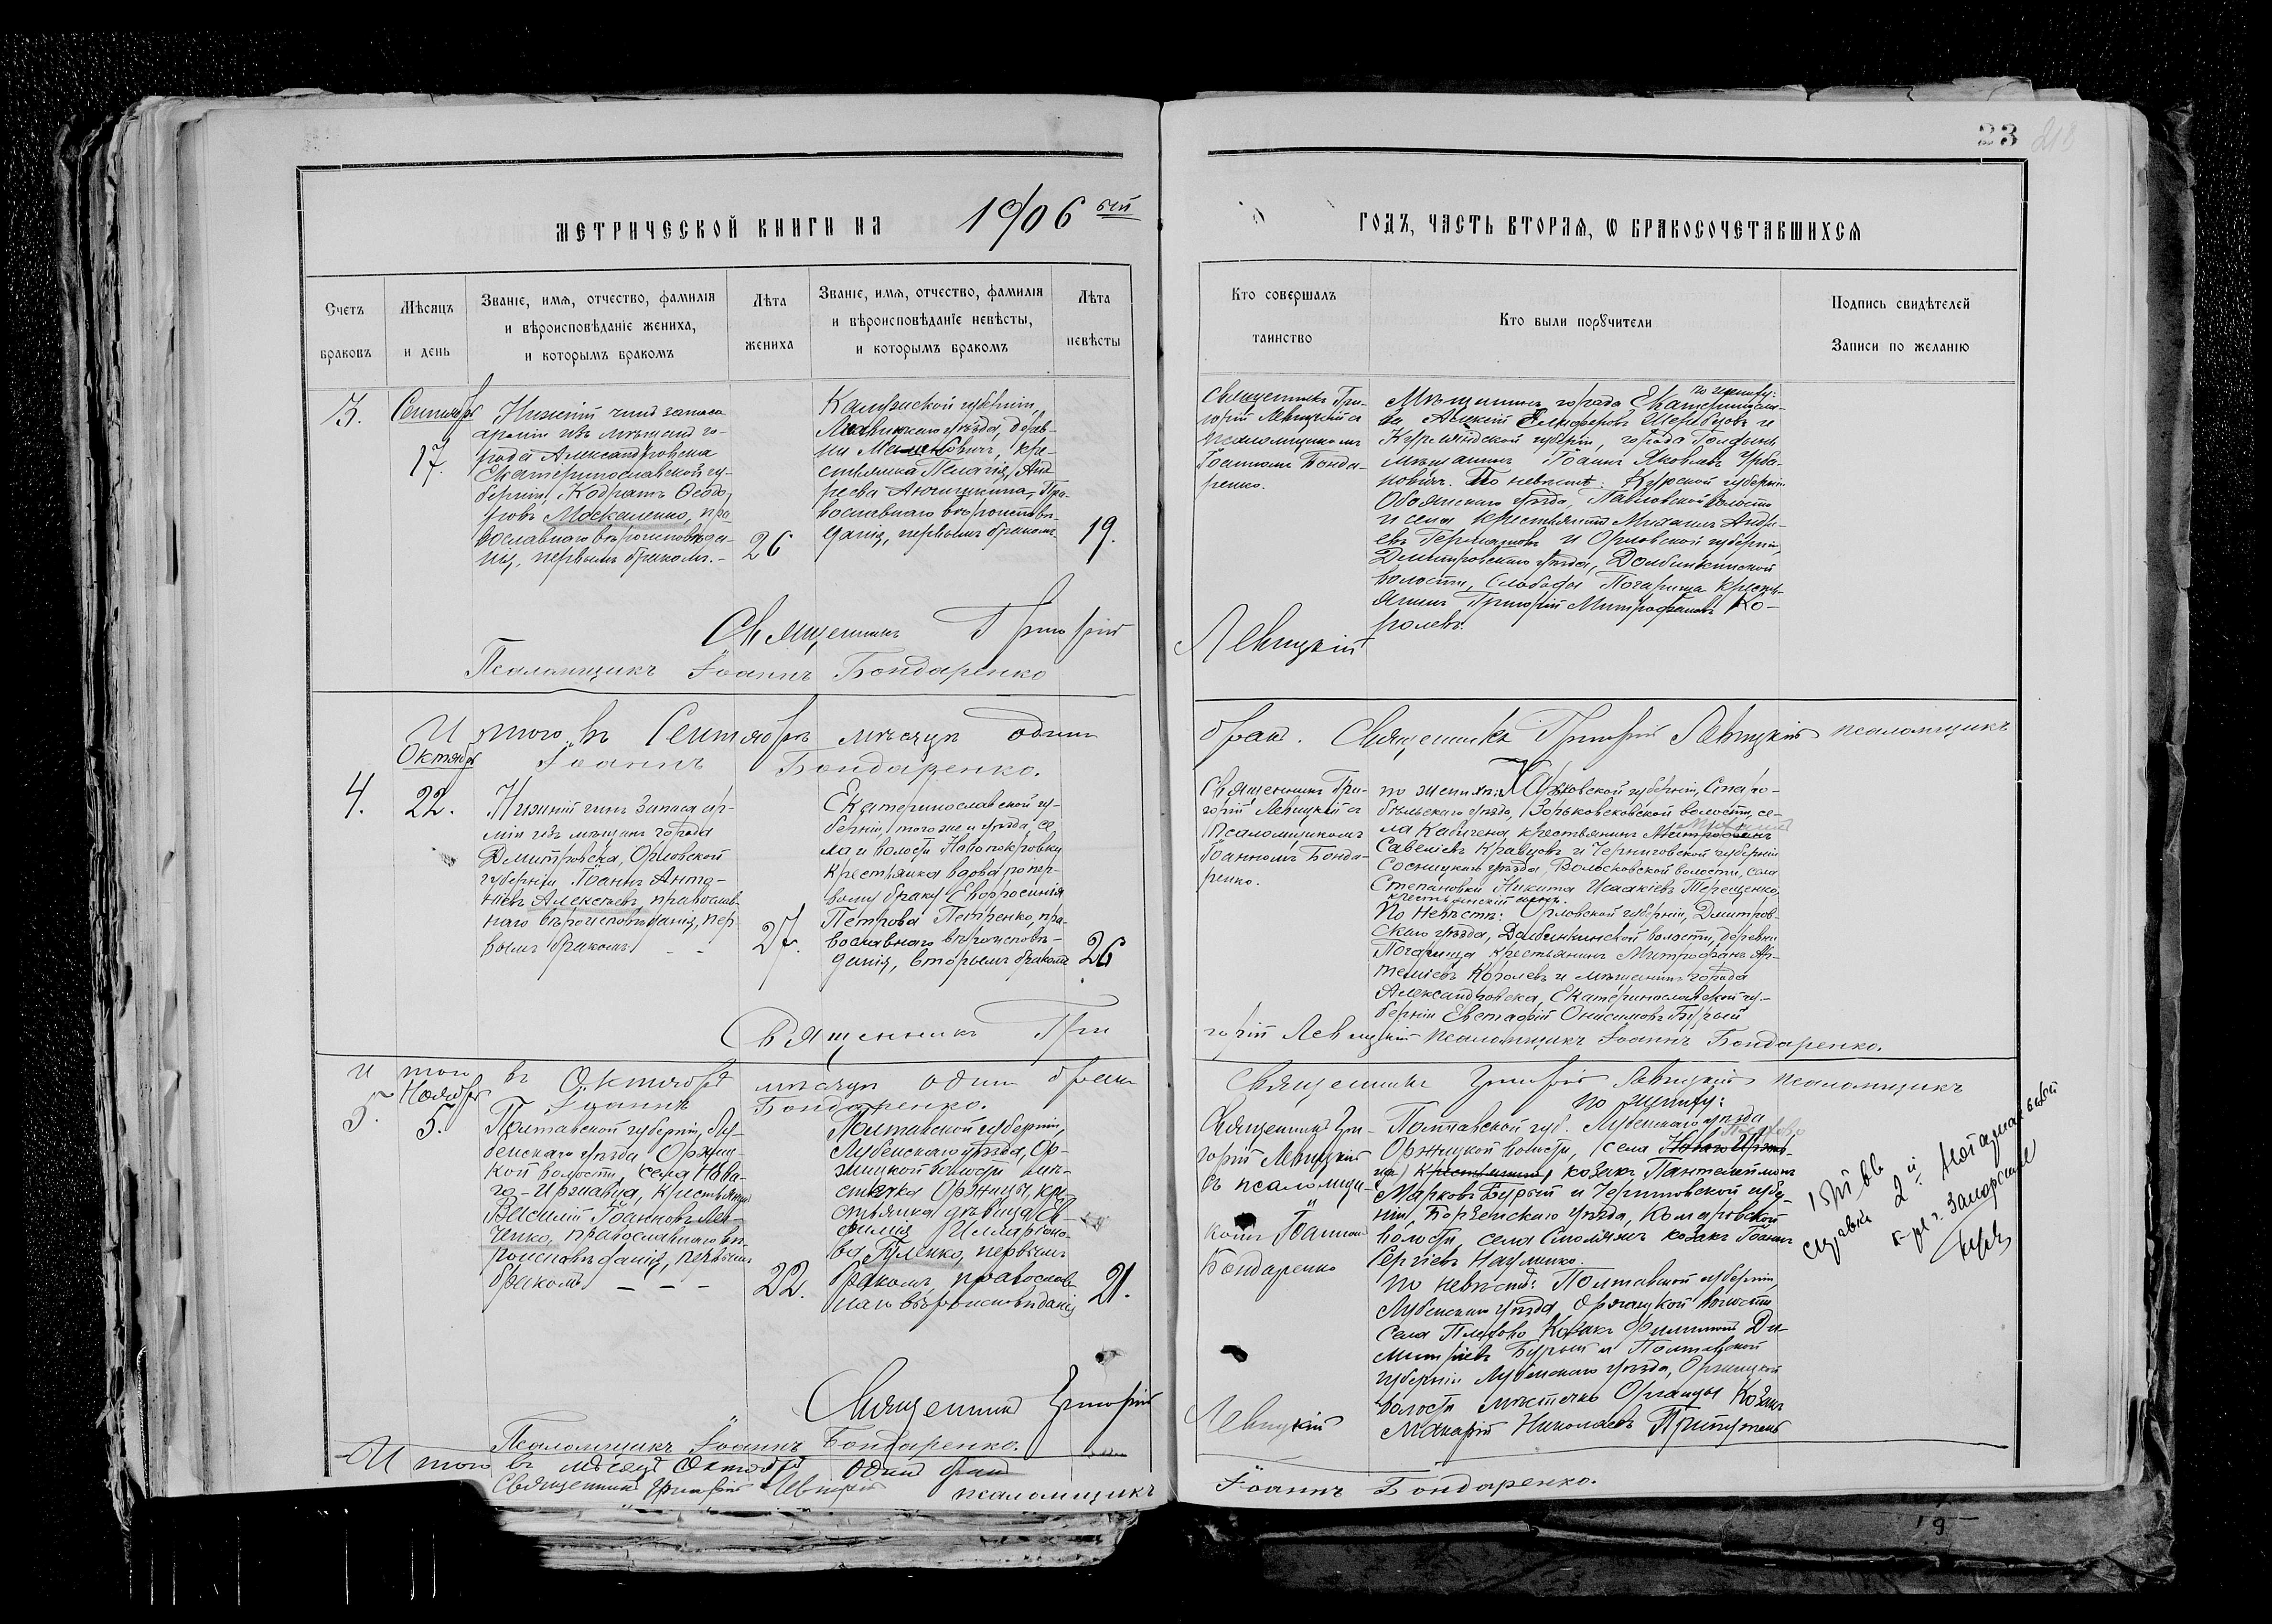 23 218
МЕТРИЧЕСКОЙ КНИГИ НА 1906 ый ГОДЪ, ЧАСТЬ ВТОРАЯ, Ѡ БРАКОСОЧЕТАВШИХСЯ
Счетъ
браковъ
Мѣсяцъ
и день
Званіе, имя, отчество, фамилія
и вѣроисповѣданіе жениха,
и которымъ бракомъ
Лѣта
жениха
Званіе, имя, отчество, фамилія
и вѣроисповѣданіе невѣсты,
и которымъ бракомъ
Лѣта
невѣсты
Кто совершалъ
таинство
Кто были порꙋчители
Подпись свидѣтелей
Записи по желанію
3.
Сентябрь
17.
Нижній чинъ запаса
арміи изъ мѣщанъ го-
рода Александровска
Екатеринославской гу-
берніи, Кодратъ Ѳеодо-
ровъ Москаленко, пра
вославнаго вѣроисповѣда-
нія, первымъ бракомъ. -
26
Калужской губерніи,
уѣзда, дерев-
ни кре-
стьянка Пелагія Анд
реева Анчишкина, Пра-
вославнаго вѣроисповѣ-
данія, первымъ бракомъ.
19.
Священникъ Гри-
горій Левицкій съ
псаломщикомъ
Іоанномъ Бонда-
ренко.
по жениху:
Мѣщанинъ города Екатериносла-
ва Алексій Елиферовъ и
Курляндской губерніи, города
мѣщанинъ Іоаннъ Яковлевъ Урба-
новичъ. По невѣстѣ: Курской губерніи
Обоянскаго уѣзда, Павловской волости
и села крестьянинъ Михаилъ Андре-
евъ и Орловской губерніи,
Дмитровскаго уѣзда, Долбинкинской
волости, Слободы Погарища крестья-
янинъ Григорій Митрофановъ Ко-
ролевъ.
Священникъ Григорій Левицкій
Псаломщикъ Іоаннъ Бондаренко
Итого въ Сентябрѣ мѣсяцѣ одинъ бракъ. Священникъ Григорій Левицкій псаломщикъ
Іоаннъ Бондаренко.
4.
Октябрь
22.
Нижній чинъ запаса ар-
міи изъ мѣщанъ города
Дмитровска, Орловской
губерніи Іоаннъ Анто-
ніевъ Алексѣевъ, православ-
наго вѣроисповѣданія, пер
вымъ бракомъ - -
27.
Екатеринославской гу-
берніи, того же и уѣзда, се
ла и волости Новопокровки
крестьянка вдова по пер-
вому браку Евфросинія
Петрова Петренко, пра-
вославнаго вѣроисповѣ-
данія, вторымъ бракомъ
26
Священникъ Гри-
горій Левицкій съ
псаломщикомъ
Іоанномъ Бонда-
ренко.
по жениху: Харьковской губерніи, Старо-
бѣльскаго уѣзда, Зорьковской волости, се-
ла Кабичена, крестьянинъ Митрофанъ
Савеліевъ Кравцовъ и Черниговской губерніи
Сосницкаго уѣзда, Волосковской волости, села
Степановки Никита Исаакіевъ Терещенко,
крестьянскій сынъ.
По невѣстѣ: Орловской губерніи, Дмитров-
скаго уѣзда, Долбинкинской волости, деревни
Погарища крестьянинъ Митрофанъ Ар-
теміевъ Королевъ и мѣщанинъ города
Александровска, Екатеринославской гу-
берніи Евстафій Онисимовъ Бурый
Священникъ Григорій Левицкій псаломщикъ Іоаннъ Бондаренко.
И того въ Октябрѣ мѣсяцѣ одинъ бракъ Священникъ Григорій Левицкій псаломщикъ
Іоаннъ Бондаренко.
5.
Ноябрь
5.
Полтавской губерніи, Лу-
бенскаго уѣзда Оржиц-
кой волости, села Нова-
го-Иржавца, крестьянинъ
Василій Іоанновъ Лев-
ченко, православнаго вѣ-
роисповѣданія, первымъ
бракомъ - - -
22.
Полтавской губерніи,
Лубенскаго уѣзда, Ор-
жицкой волости мѣ-
стечка Оржицы, кре-
стьянка дѣвица
Илларіоно-
ва Гуленко, первымъ
бракомъ, православ
наго вѣроисповѣданія
21.
Священникъ Гри-
горій Левицкій
съ псаломщи-
комъ Іоанномъ
Бондаренко
по жениху:
Полтавской губ. Лубенскаго уѣзда
Оржицкой волости, (села Новаго Иржав-
ца) крестьянинъ, козакъ Пантелеймонъ
Марковъ Бурый и Черниговской губер-
ніи, Борзенскаго уѣзда, Комаровской
волости, села козакъ Іоаннъ
Сергіевъ Науменко.
по невѣстѣ: Полтавской губерніи,
Лубенскаго уѣзда, Оржицкой волости
села Плехово Козакъ Филимонъ Ди-
митріевъ Бурый и Полтавской
губерніи Лубенскаго уѣзда, Оржицкой
волости мѣстечка Оржицы Козакъ
Макарій Николаевъ
15/III 66
справка 2й нотариальной
г. Запорожье
Священникъ Григорій Левицкій
Псаломщикъ Іоаннъ Бондаренко.
Итого въ мѣсяцѣ Октябрѣ одинъ бракъ
Священникъ Григорій Левицкій псаломщикъ Іоаннъ Бондаренко.